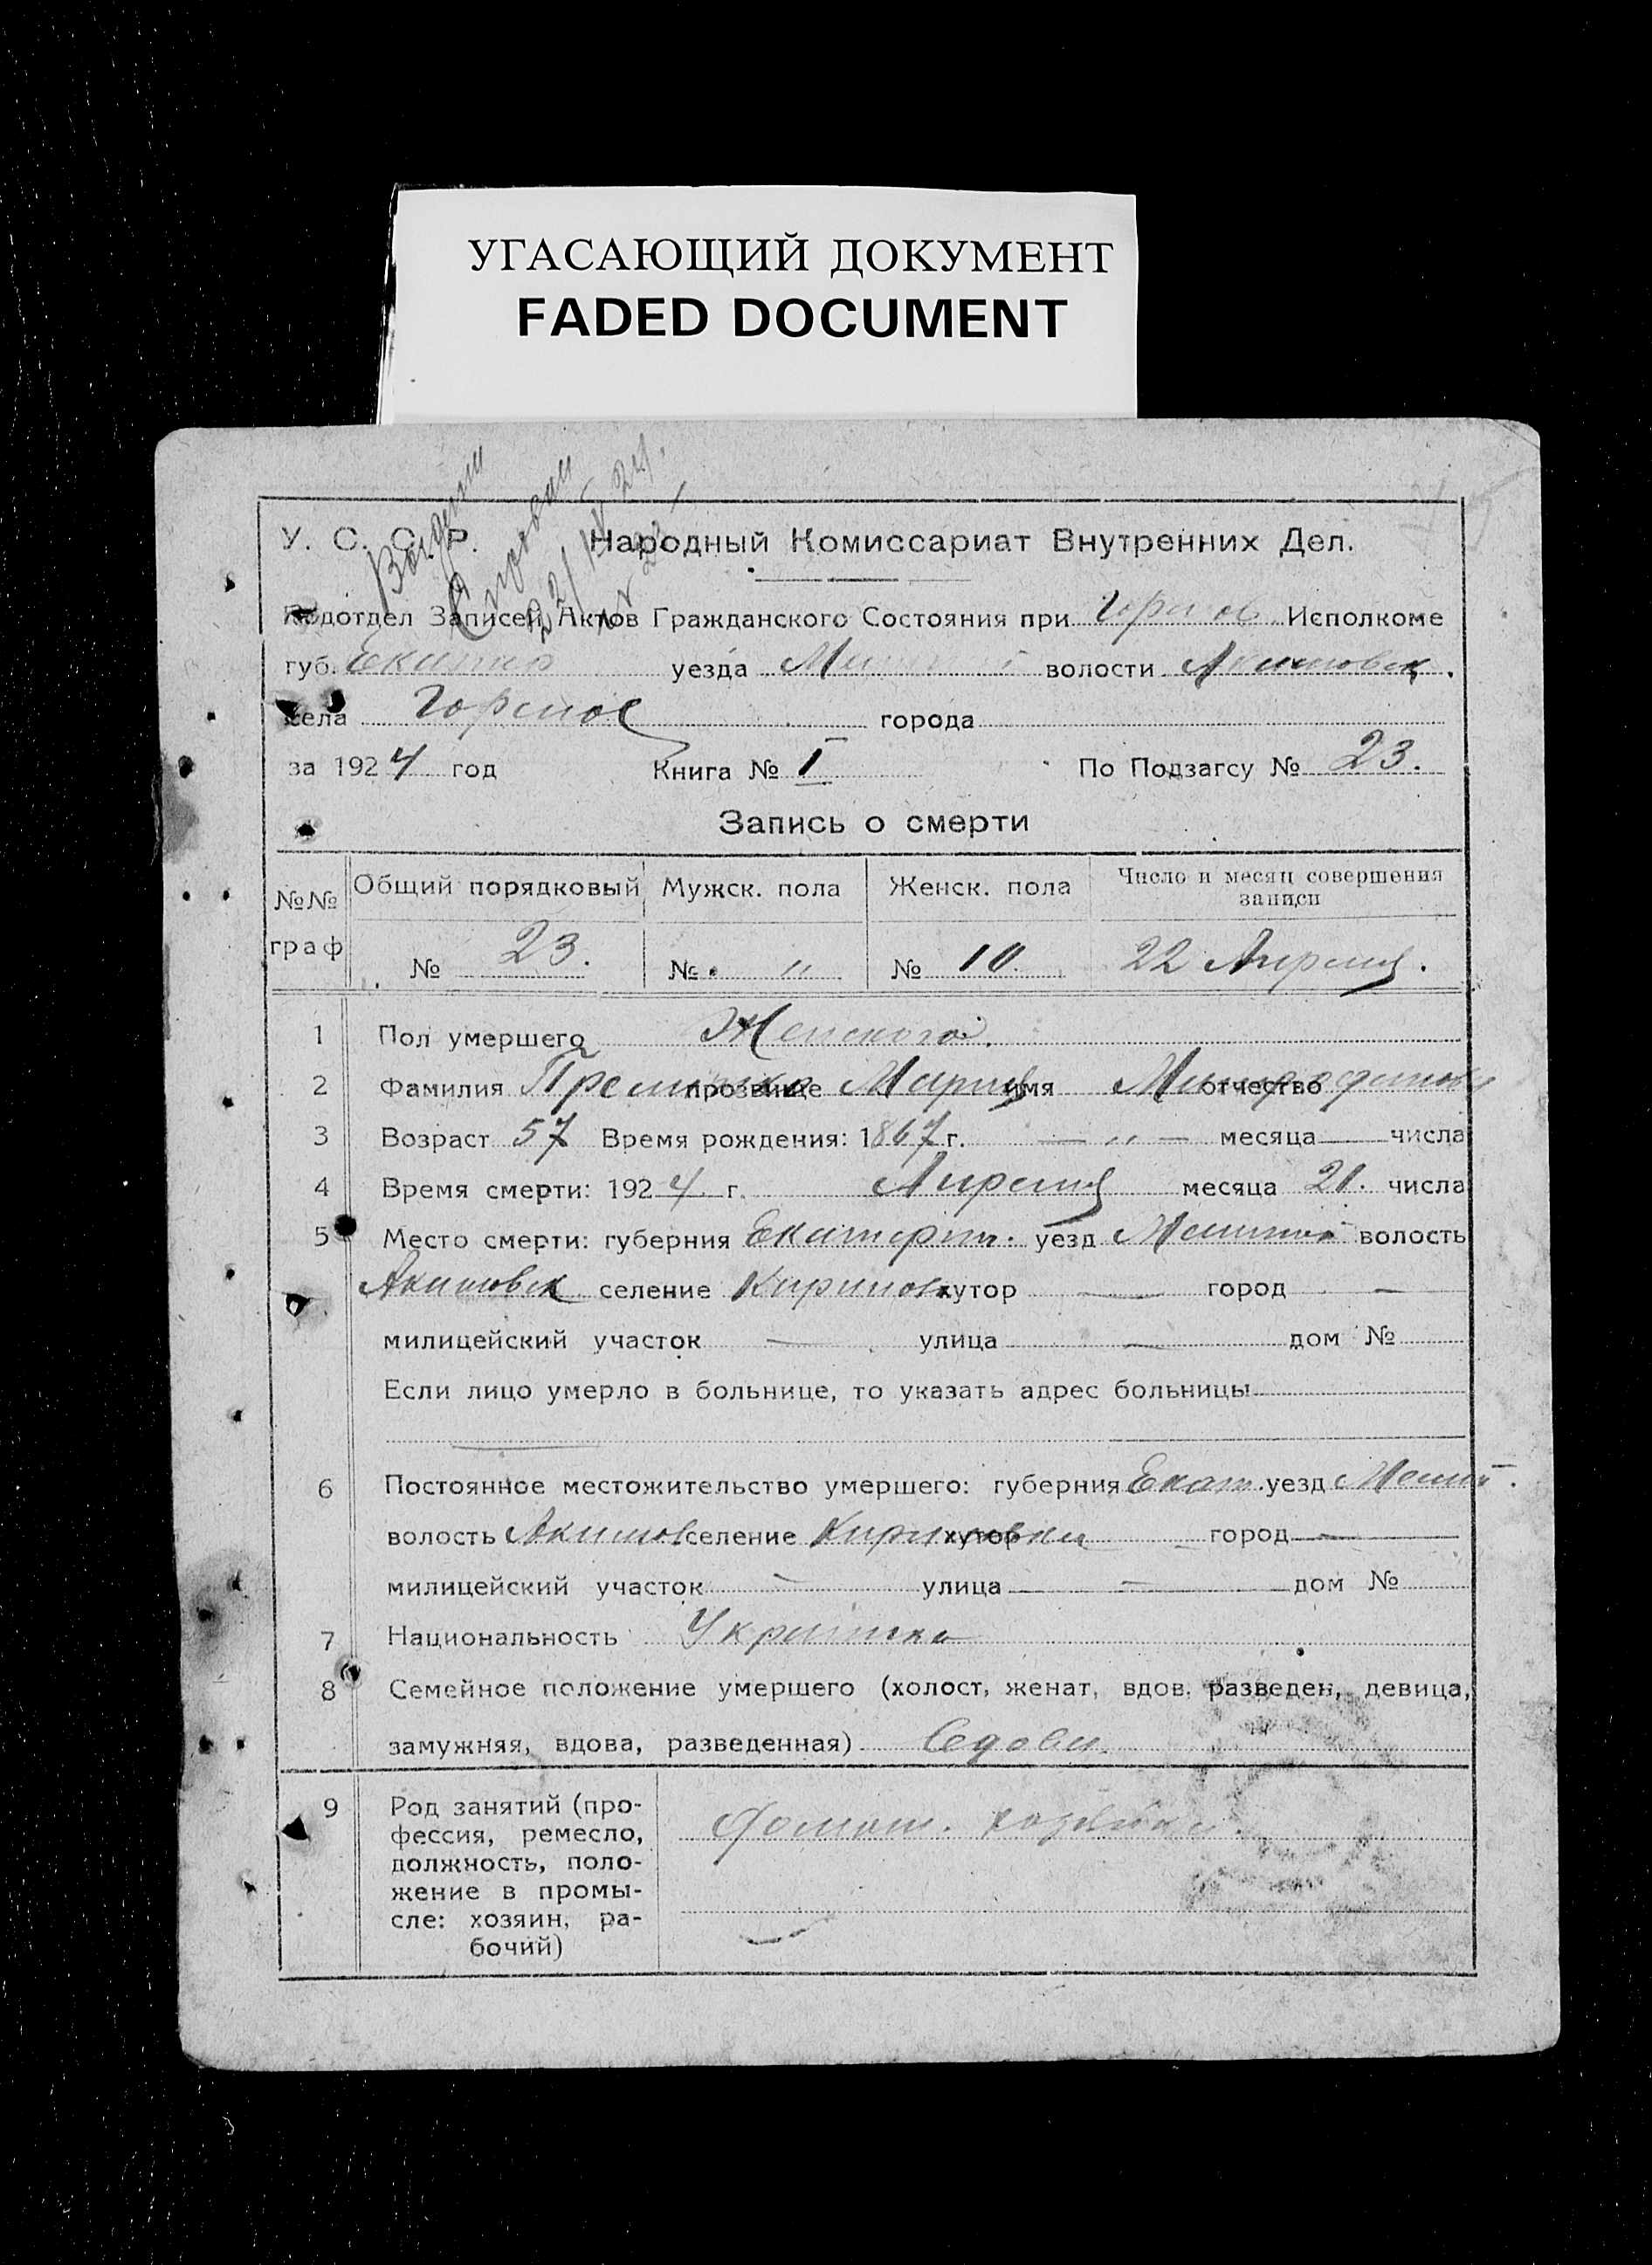 УГАСАЮЩИЙ ДОКУМЕНТ
FADED DOCUMENT
У. С. С. Р. Народный Комиссариат Внутренних Дел.
Подотдел Записей Актов Гражданского Состояния при Исполкоме
губ. уезда волости Акимовск.
села города
за 1924 год Книга № I По Подзагсу № 23.
Запись о смерти
№№ граф Общий порядковый Мужск. пола Женск. пола Число и месяц совершения записи
№ 23. № " № 10. 22 Апреля.
1 Пол умершего Женского.
2 Фамилия прозвище Мария имя отчество
3 Возраст 57 Время рождения: 1867 г. — " — месяца — числа
4 Время смерти: 1924 г. Апреля месяца 21. числа
5 Место смерти: губерния Екатерин. уезд волость
Акимовск селение хутор — город —
милицейский участок — улица — дом №
Если лицо умерло в больнице, то указать адрес больницы
6 Постоянное местожительство умершего: губерния Екат. уезд Мелит.
волость Акимов селение хутор город —
милицейский участок — улица — дом №
7 Национальность Украинка
8 Семейное положение умершего (холост, женат, вдов, разведен, девица,
замужняя, вдова, разведенная) вдова.
9 Род занятий (про-
фессия, ремесло,
должность, поло-
жение в промы-
сле: хозяин, ра-
бочий)
домаш. хозяйка.